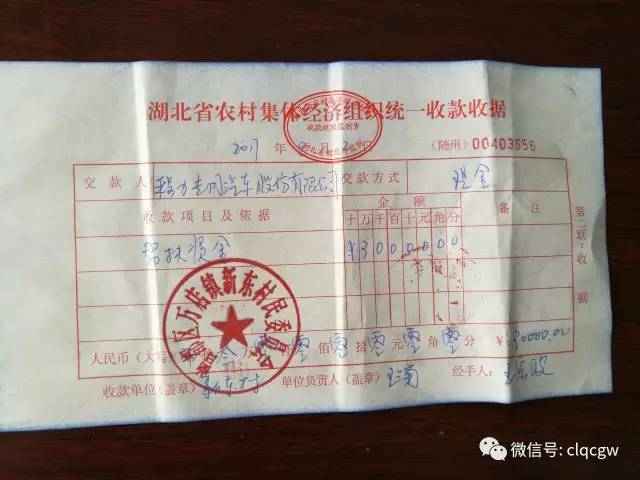 湖北省农村集体经济组织统一收款收据
2017年
(随州) 00403556
交款人 程力专用汽车股份有限公司 交款方式 现金
收款项目及依据 金额 备注
十万千百十元角分
帮扶资金 ¥3000000
第二联:收据
万店镇新东村民委员会
人民币(大写) 叁万零仟零佰零拾零元零角零分 ¥:30000.00
收款单位(盖章) 新东村 单位负责人(盖章) 经手人:
微信号: clqcgw